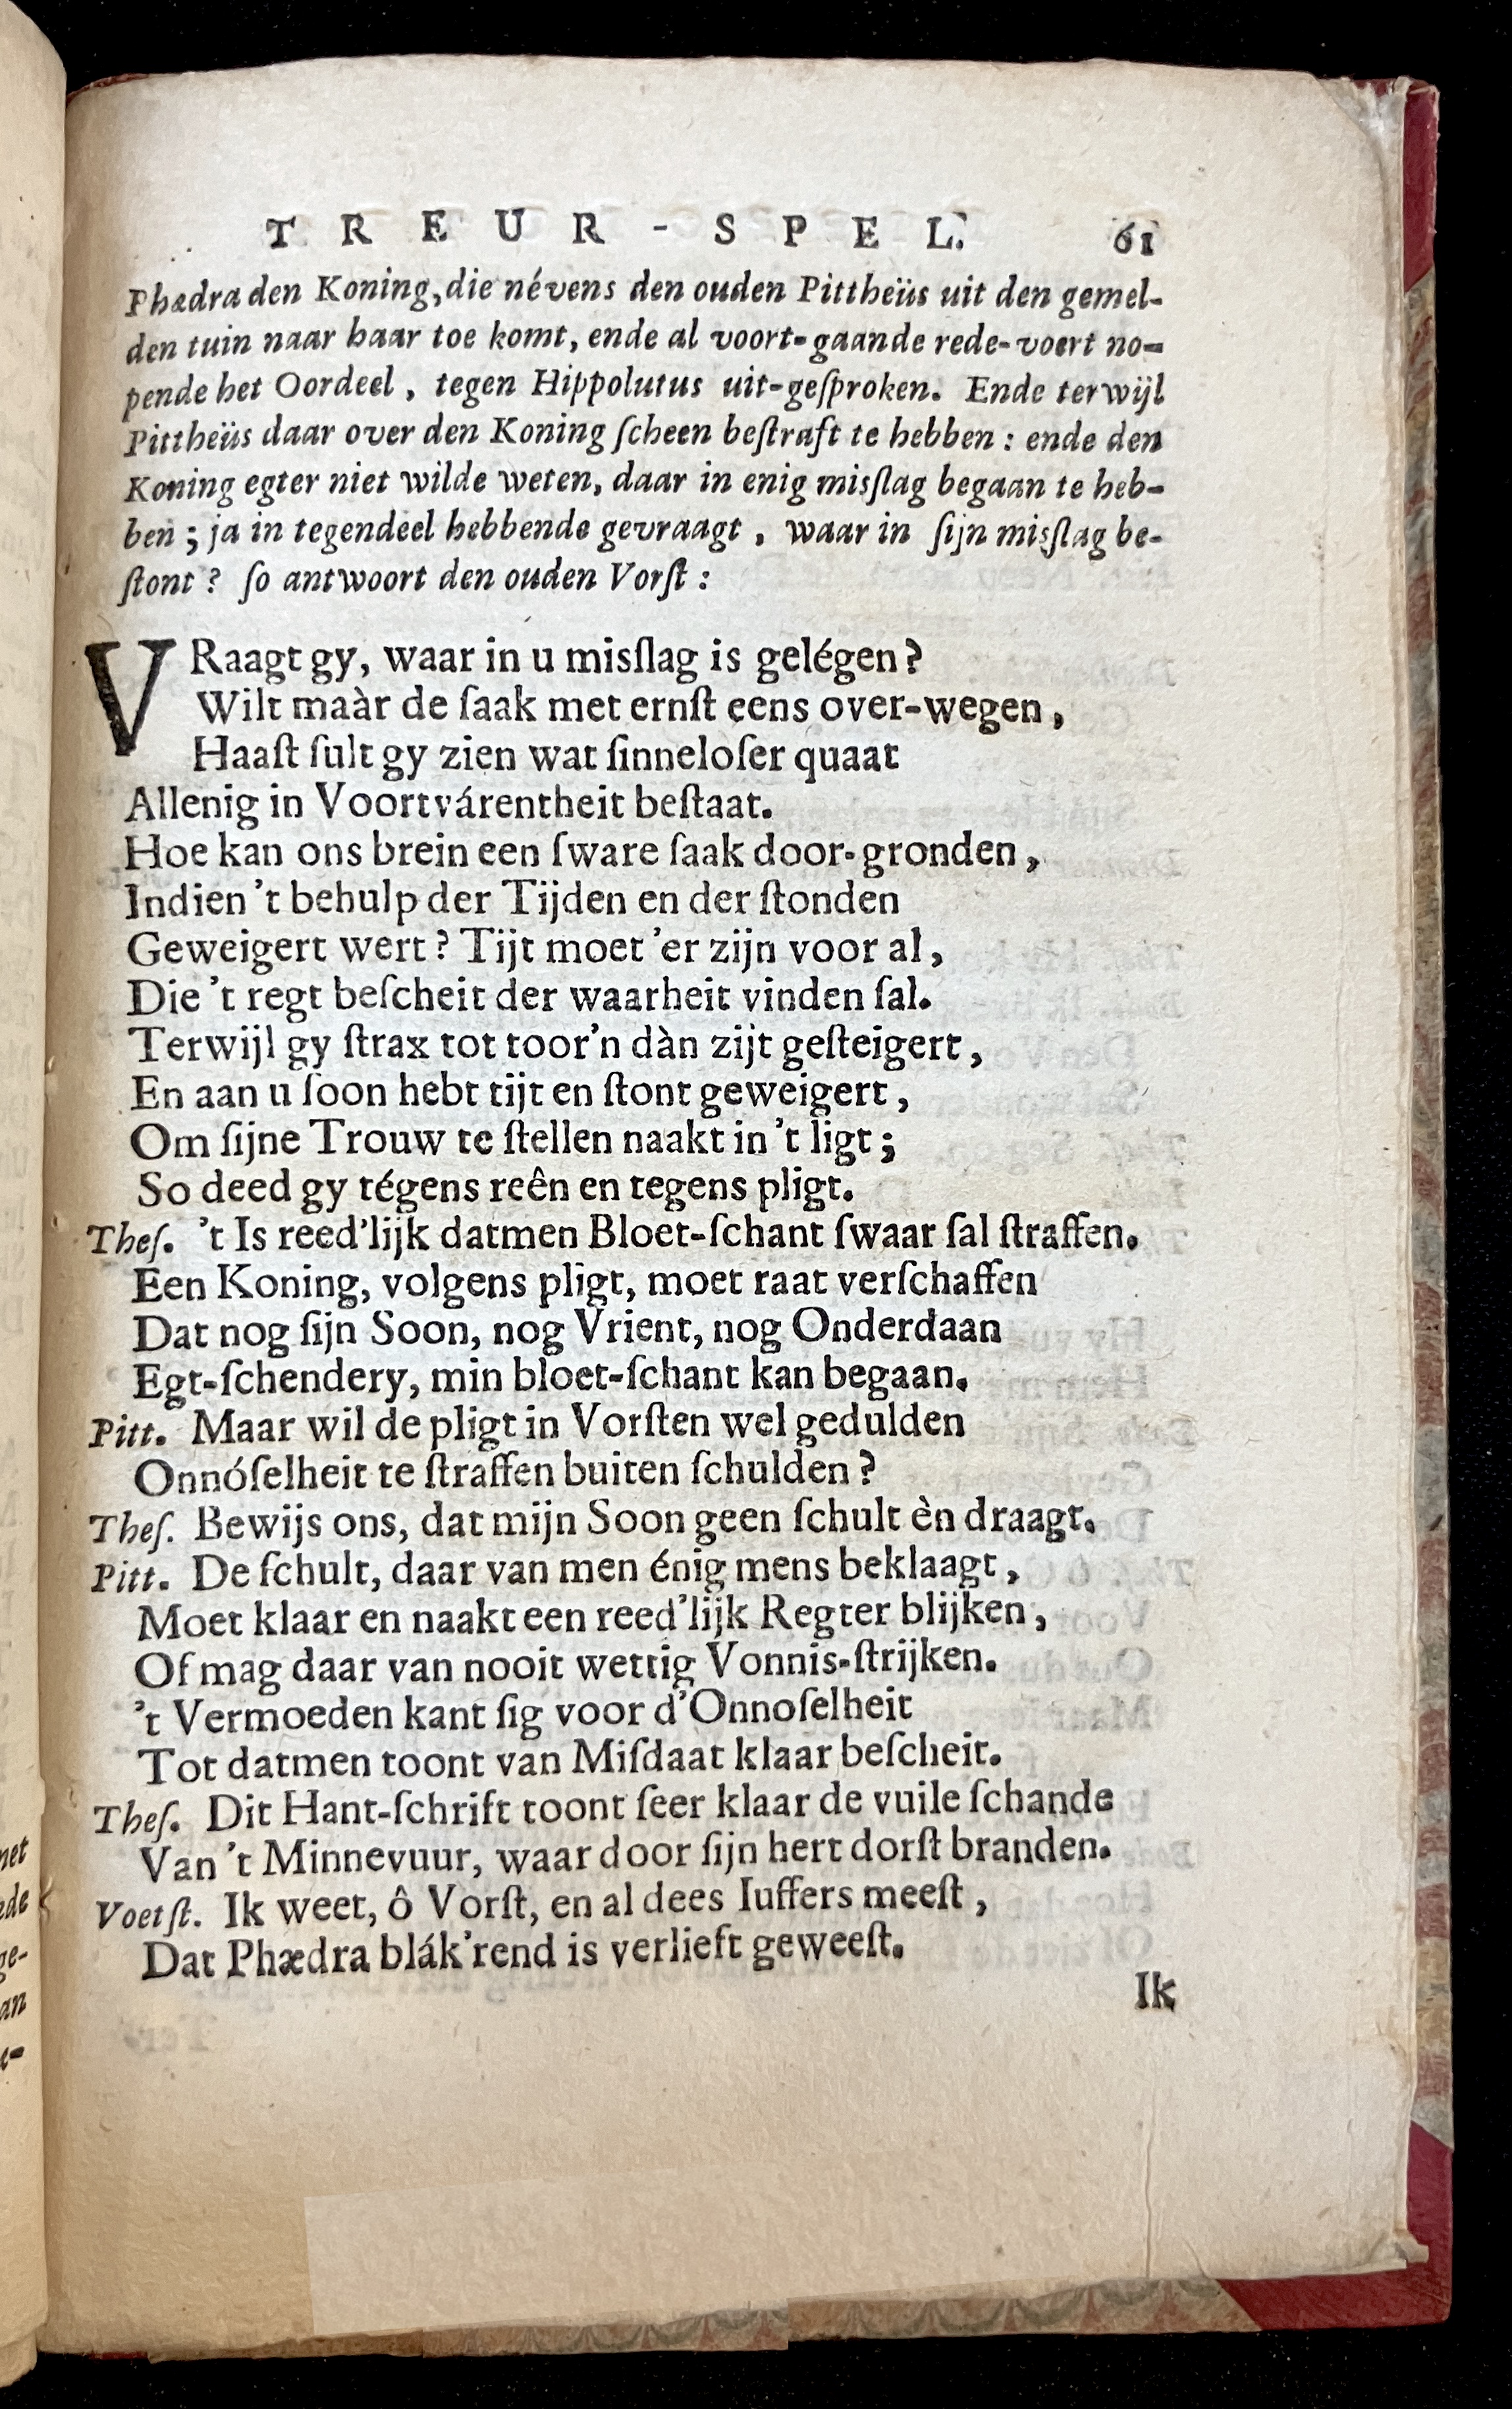 TREUR-SPEL. 61
Phædra den Koning, die névens den ouden Pittheüs uit den gemel-
den tuin naar haar toe komt, ende al voort-gaande rede-voert no-
pende het Oordeel, tegen Hippolutus uit-geſproken. Ende terwijl
Pittheüs daar over den Koning ſcheen beſtraft te hebben: ende den
Koning egter niet wilde weten, daar in enig misſlag begaan te heb-
ben; ja in tegendeel hebbende gevraagt, waar in ſijn misſlag be-
ſtont? ſo antwoort den ouden Vorſt:
VRaagt gy, waar in u misſlag is gelégen?
Wilt maàr de ſaak met ernſt eens over-wegen,
Haaſt ſult gy zien wat ſinneloſer quaat
Allenig in Voortvárentheit beſtaat.
Hoe kan ons brein een ſware ſaak door-gronden,
Indien 't behulp der Tijden en der ſtonden
Geweigert wert? Tijt moet 'er zijn voor al,
Die 't regt beſcheit der waarheit vinden ſal.
Terwijl gy ſtrax tot toor'n dàn zijt geſteigert,
En aan u ſoon hebt tijt en ſtont geweigert,
Om ſijne Trouw te ſtellen naakt in 't ligt;
So deed gy tégens reên en tegens pligt.
Theſ. 't Is reed'lijk datmen Bloet-ſchant ſwaar ſal ſtraffen.
Een Koning, volgens pligt, moet raat verſchaffen
Dat nog ſijn Soon, nog Vrient, nog Onderdaan
Egt-ſchendery, min bloet-ſchant kan begaan.
Pitt. Maar wil de pligt in Vorſten wel gedulden
Onnóſelheit te ſtraffen buiten ſchulden?
Theſ. Bewijs ons, dat mijn Soon geen ſchult èn draagt.
Pitt. De ſchult, daar van men énig mens beklaagt,
Moet klaar en naakt een reed'lijk Regter blijken,
Of mag daar van nooit wettig Vonnis-ſtrijken.
't Vermoeden kant ſig voor d'Onnoſelheit
Tot datmen toont van Miſdaat klaar beſcheit.
Theſ. Dit Hant-ſchrift toont ſeer klaar de vuile ſchande
Van 't Minnevuur, waar door ſijn hert dorſt branden.
Voetſt. Ik weet, ô Vorſt, en al dees Iuffers meeſt,
Dat Phædra blák'rend is verlieft geweeſt.
Ik